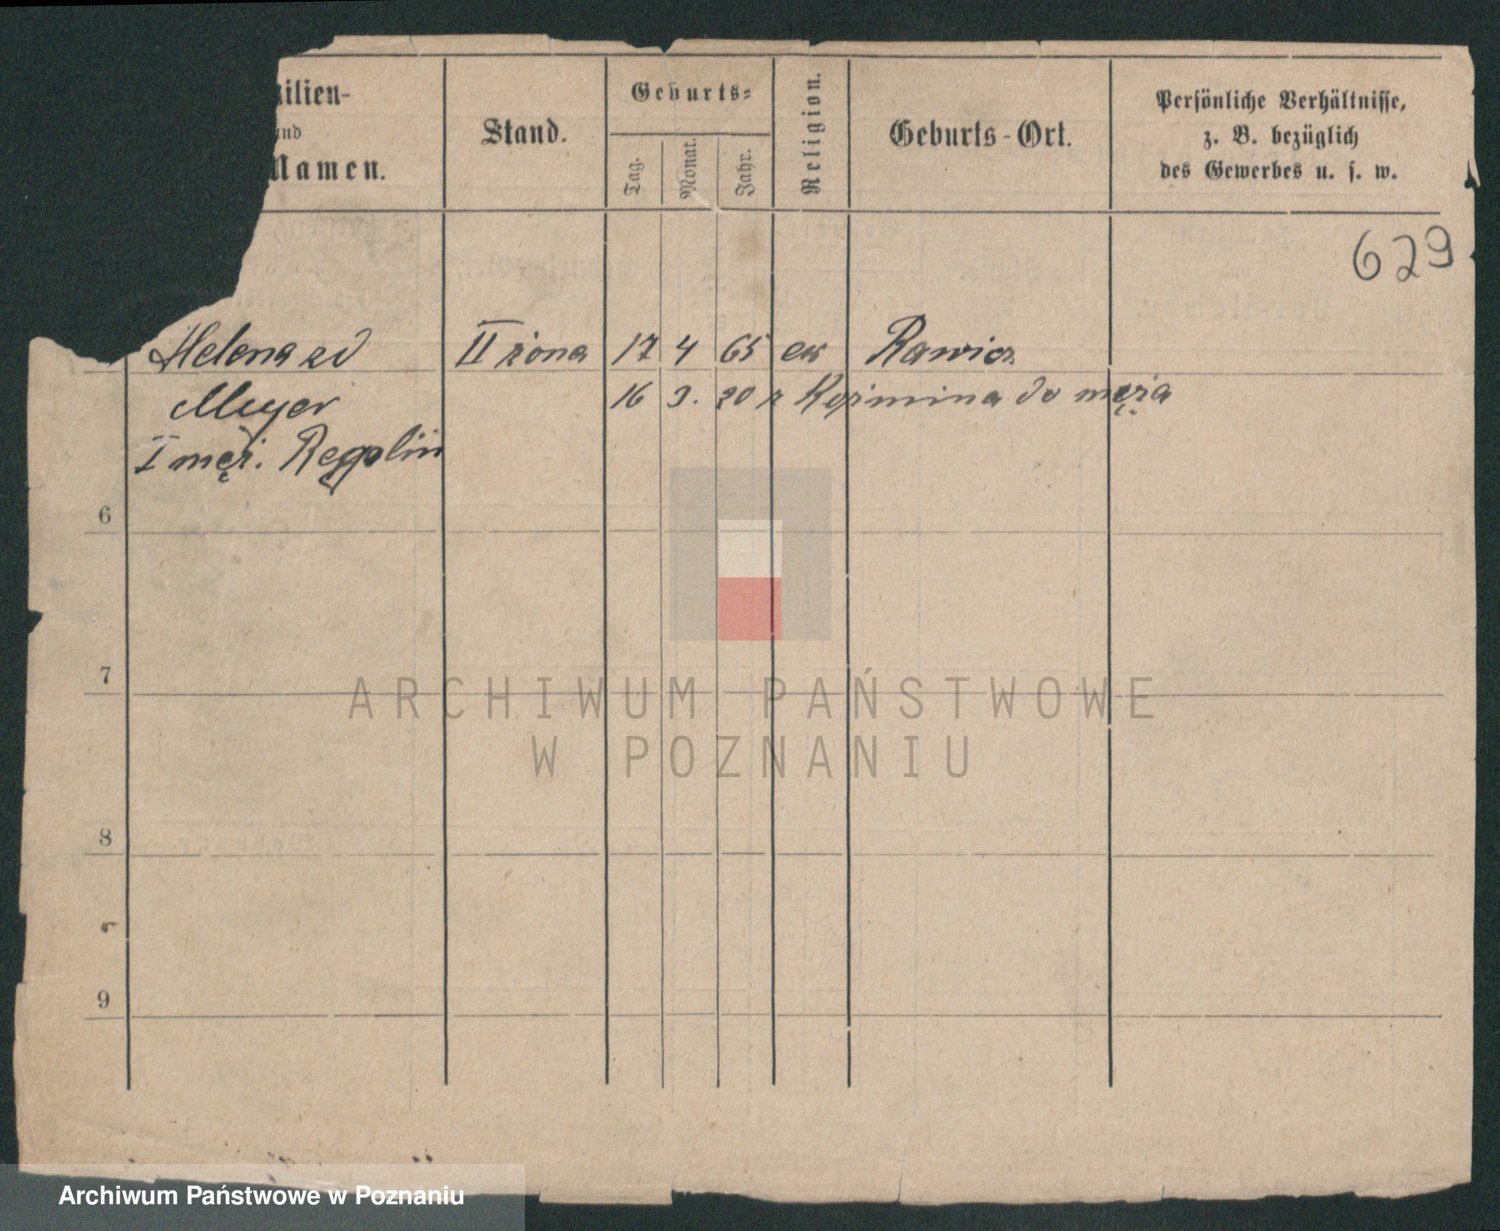 ilien-
und
Namen.
Stand.
Geburts-
Tag.
Monat.
Jahr.
Religion.
Geburts-Ort.
Persönliche Verhältnisse,
z. B. bezüglich
des Gewerbes u. s. w.
629
Helena zd II żona 17 4 65 ew Rawicz
Meyer 16 3. 20 z Koźmina do męża
I męż. Regplin
6
7
ARCHIWUM PAŃSTWOWE
W POZNANIU
8
9
Archiwum Państwowe w Poznaniu